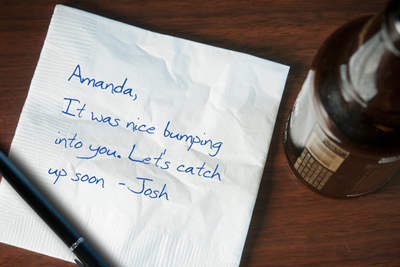 Amanda,
It was nice bumping
into you. Let's catch
up soon - Josh